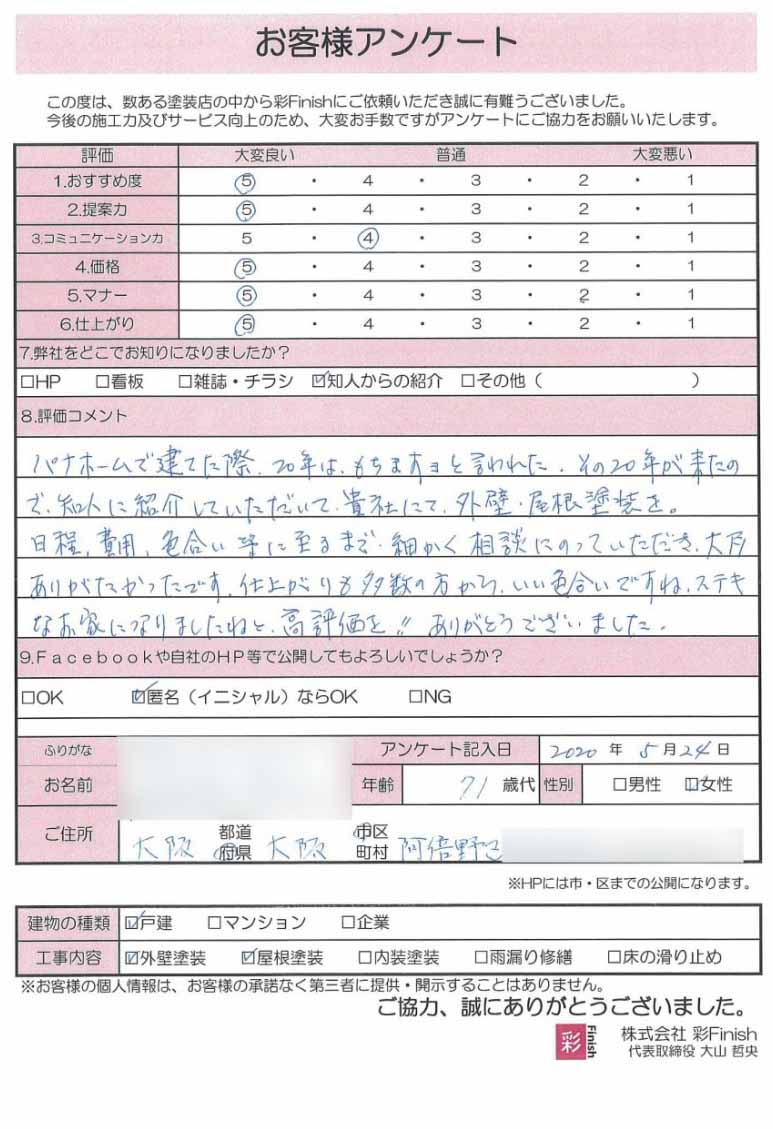 お客様アンケート
この度は、数ある塗装店の中から彩Finishにご依頼いただき誠に有難うございました。
今後の施工力及びサービス向上のため、大変お手数ですがアンケートにご協力をお願いいたします。
評価 大変良い 普通 大変悪い
1.おすすめ度 5 ・ 4 ・ 3 ・ 2 ・ 1
2.提案力 5 ・ 4 ・ 3 ・ 2 ・ 1
3.コミュニケーション力 5 ・ 4 ・ 3 ・ 2 ・ 1
4.価格 5 ・ 4 ・ 3 ・ 2 ・ 1
5.マナー 5 ・ 4 ・ 3 ・ 2 ・ 1
6.仕上がり 5 ・ 4 ・ 3 ・ 2 ・ 1
7.弊社をどこでお知りになりましたか?
□HP □看板 □雑誌・チラシ ☑知人からの紹介 □その他( )
8.評価コメント
パナホームで建てた際、20年は、もちますヨと言われた。その20年が来たの
で、知人に紹介していただいて、貴社にて、外壁・屋根塗装を。
日程、費用、色合い等に至るまで、細かく相談にのっていただき、大変
ありがたかったです。仕上がりも多数の方から、いい色合いですね、ステキ
なお家になりましたねと、高評価を!! ありがとうございました。
9.Facebookや自社のHP等で公開してもよろしいでしょうか?
□OK ☑匿名(イニシャル)ならOK □NG
ふりがな アンケート記入日 2020 年 5 月 24 日
お名前 年齢 71 歳代 性別 □男性 ☑女性
ご住所 大阪 都道府県 大阪 市区町村 阿倍野区
※HPには市・区までの公開になります。
建物の種類 ☑戸建 □マンション □企業
工事内容 ☑外壁塗装 ☑屋根塗装 □内装塗装 □雨漏り修繕 □床の滑り止め
※お客様の個人情報は、お客様の承諾なく第三者に提供・開示することはありません。
ご協力、誠にありがとうございました。
彩 Finish 株式会社 彩Finish
代表取締役 大山 哲央